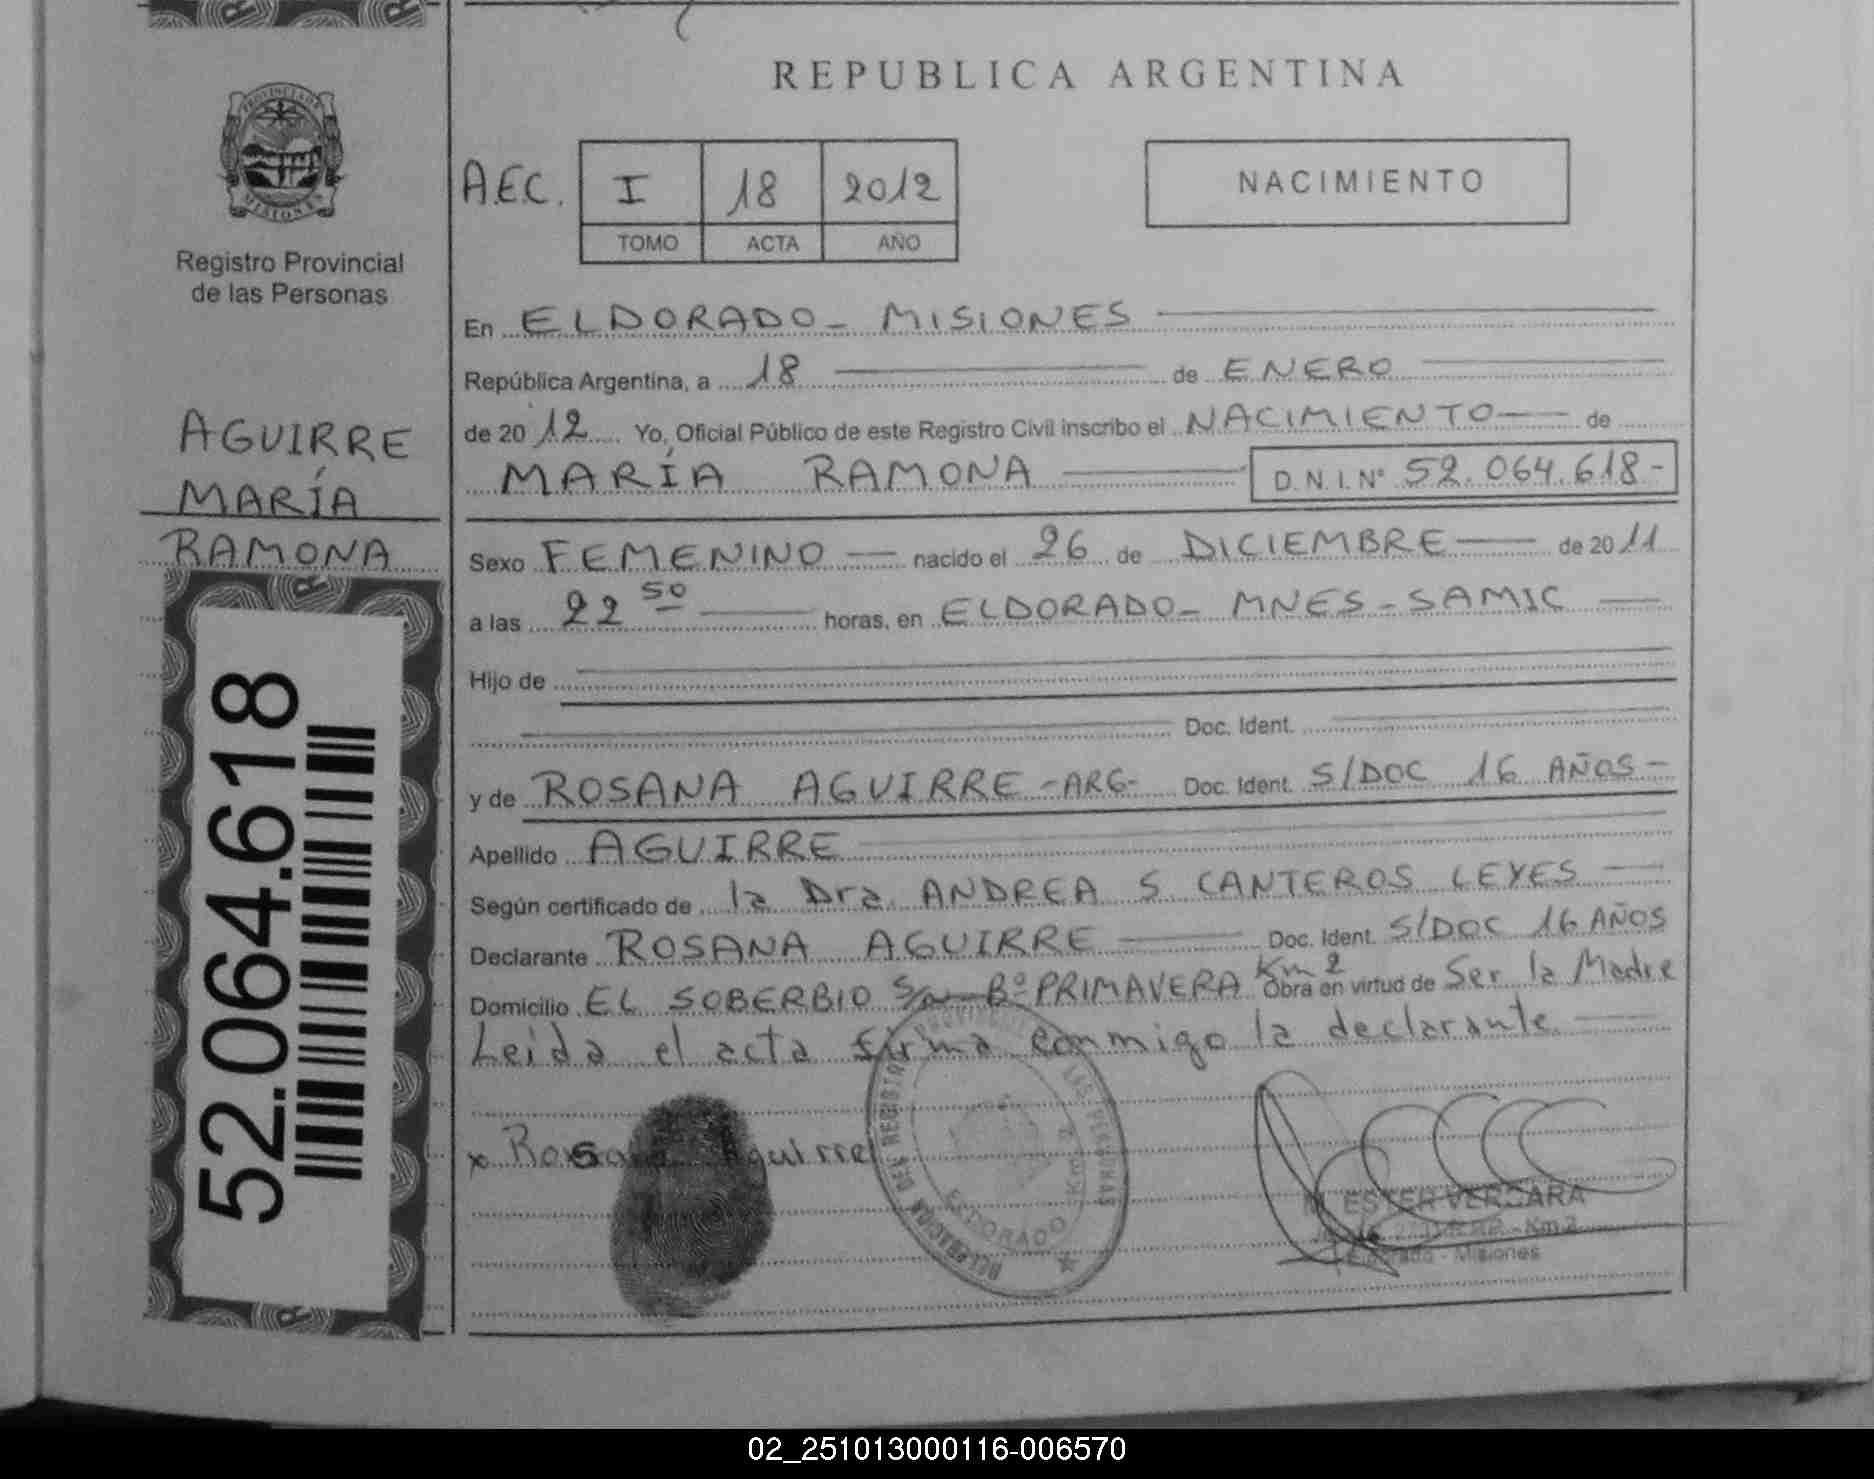 REPUBLICA ARGENTINA
PROVINCIA DE
MISIONES
Registro Provincial
de las Personas
A.E.C. I 18 2012
TOMO ACTA AÑO
NACIMIENTO
En ELDORADO - MISIONES
República Argentina, a 18 de ENERO
de 20 12 Yo, Oficial Público de este Registro Civil inscribo el NACIMIENTO de
MARÍA RAMONA D.N.I. Nº 52.064.618-
AGUIRRE
MARÍA
RAMONA
52.064.618
Sexo FEMENINO nacido el 26 de DICIEMBRE de 20 11
a las 22 50 horas, en ELDORADO - MNES - SAMIC
Hijo de
Doc. Ident.
y de ROSANA AGUIRRE - ARG - Doc. Ident. S/DOC 16 AÑOS -
Apellido AGUIRRE
Según certificado de la Dra ANDREA S. CANTEROS LEYES
Declarante ROSANA AGUIRRE Doc. Ident. S/DOC 16 AÑOS
Domicilio EL SOBERBIO S/n Bº PRIMAVERA Km 2 Obra en virtud de Ser la Madre
Leida el acta firma conmigo la declarante
x Rosana Aguirre
DELEGACION DEL REGISTRO PROVINCIAL DE LAS PERSONAS
ELDORADO Km 2
ESTER VERGARA
Km 2
Eldorado - Misiones
02_251013000116-006570